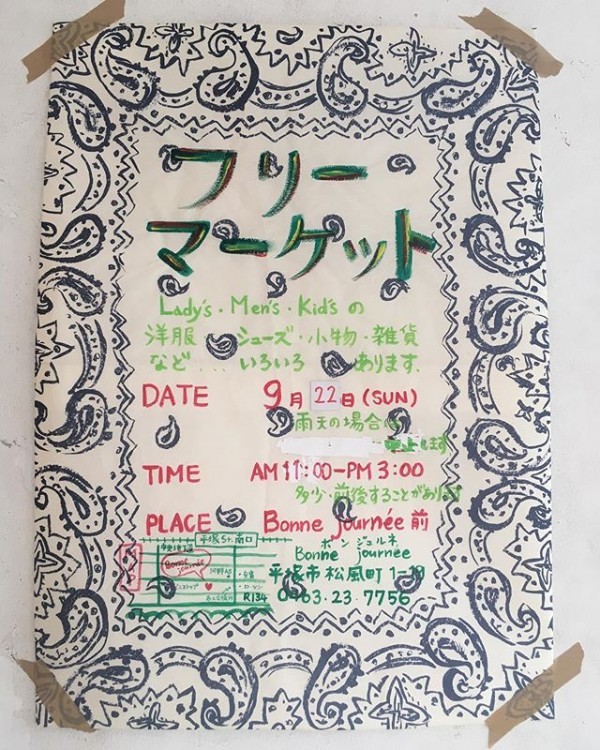 フリー
マーケット
Lady's・Men's・Kid'sの
洋服・シューズ・小物・雑貨
など....いろいろ あります.
DATE 9月22日(SUN)
雨天の場合
中止します
TIME AM11:00-PM3:00
多少・前後することがあります
PLACE Bonne journée 前
平塚St.南口
MAP
Bonne journée
R134
ボン ジュルネ
Bonne journée
平塚市松風町1-19
0463.23.7756